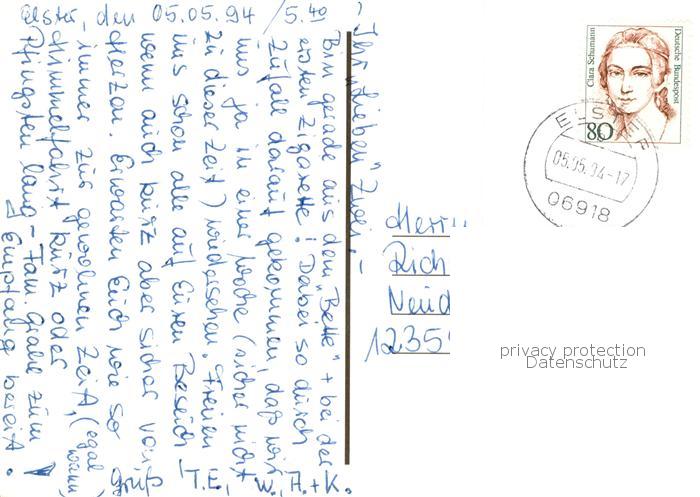 Elster, den 05.05.94 / 5.40
Ihr "Lieben" Zwei, –
Bin gerade aus dem "Bette" + bei der
ersten Zigarette! Dabei so durch
Zufall darauf gekommen, daß wir
uns ja in einer Woche (sicher nicht
zu dieser Zeit) wiedersehen. Freuen
uns schon alle auf Euren Besuch,
wenn auch kurz aber sicher
Herzen. Erwarten Euch wie so
immer zur gewohnen Zeit, (egal wann,
Himmelfahrt kurz oder
Pfingsten lang – Fam. zum
Empfang bereit.
Gruß
T.E., W., H. + K.
Herrn
Rich
Neud
1235
Clara Schumann
Deutsche Bundespost
80
ELSTER
05.05.94-17
06918
privacy protection
Datenschutz